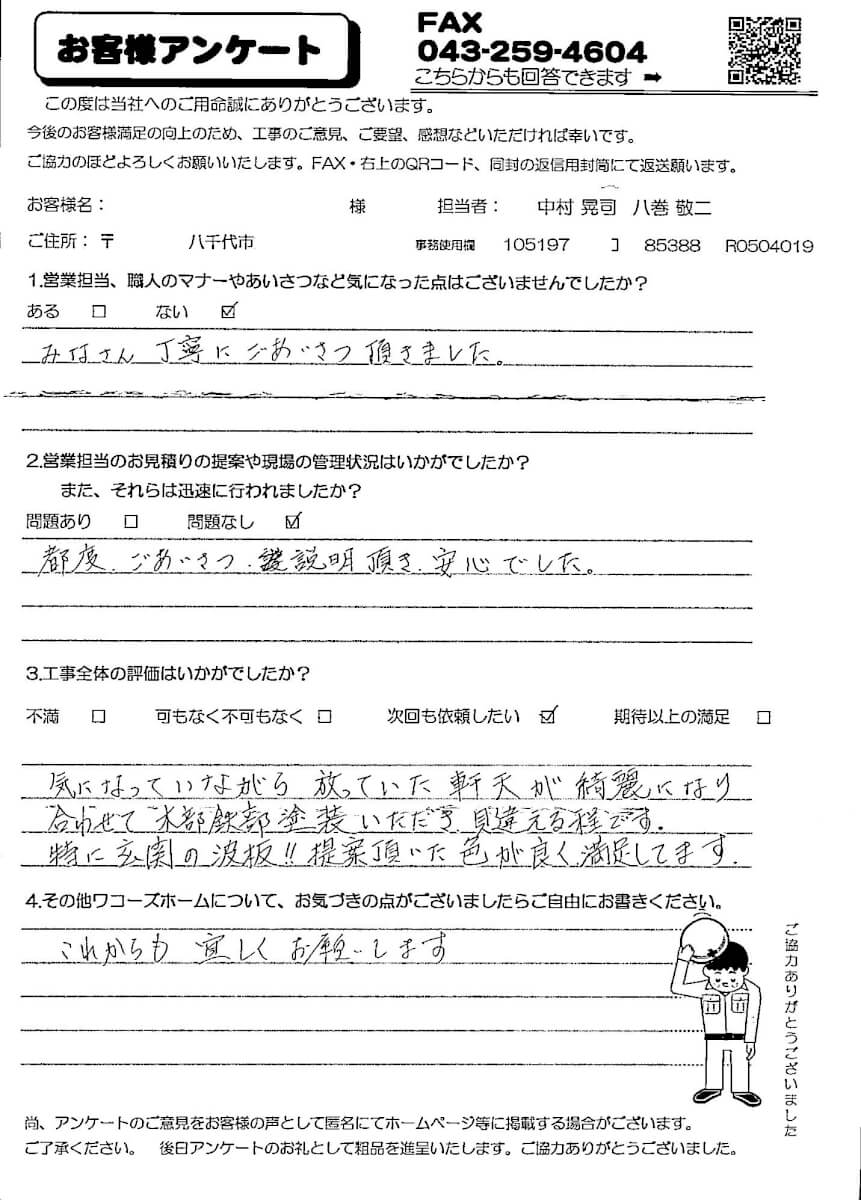 お客様アンケート
FAX
043-259-4604
こちらからも回答できます ➡
この度は当社へのご用命誠にありがとうございます。
今後のお客様満足の向上のため、工事のご意見、ご要望、感想などいただければ幸いです。
ご協力のほどよろしくお願いいたします。FAX・右上のQRコード、同封の返信用封筒にて返送願います。
お客様名： 様 担当者： 中村 晃司 八巻 敬二
ご住所：〒 八千代市 事務使用欄 105197 コ 85388 R0504019
1.営業担当、職人のマナーやあいさつなど気になった点はございませんでしたか？
ある □ ない ☑
みなさん 丁寧に ごあいさつ 頂きました。
2.営業担当のお見積りの提案や現場の管理状況はいかがでしたか？
また、それらは迅速に行われましたか？
問題あり □ 問題なし ☑
都度、ごあいさつ、説明頂き、安心でした。
3.工事全体の評価はいかがでしたか？
不満 □ 可もなく不可もなく □ 次回も依頼したい ☑ 期待以上の満足 □
気になっていながら 放っていた 軒天が 綺麗になり
合わせて 木部鉄部塗装いただき、見違える程です。
特に玄関の波板!! 提案頂いた色が良く、満足してます。
4.その他ワコーズホームについて、お気づきの点がございましたらご自由にお書きください。
これからも 宜しく お願いします
ご協力ありがとうございました
尚、アンケートのご意見をお客様の声として匿名にてホームページ等に掲載する場合がございます。
ご了承ください。 後日アンケートのお礼として粗品を進呈いたします。ご協力ありがとうございました。